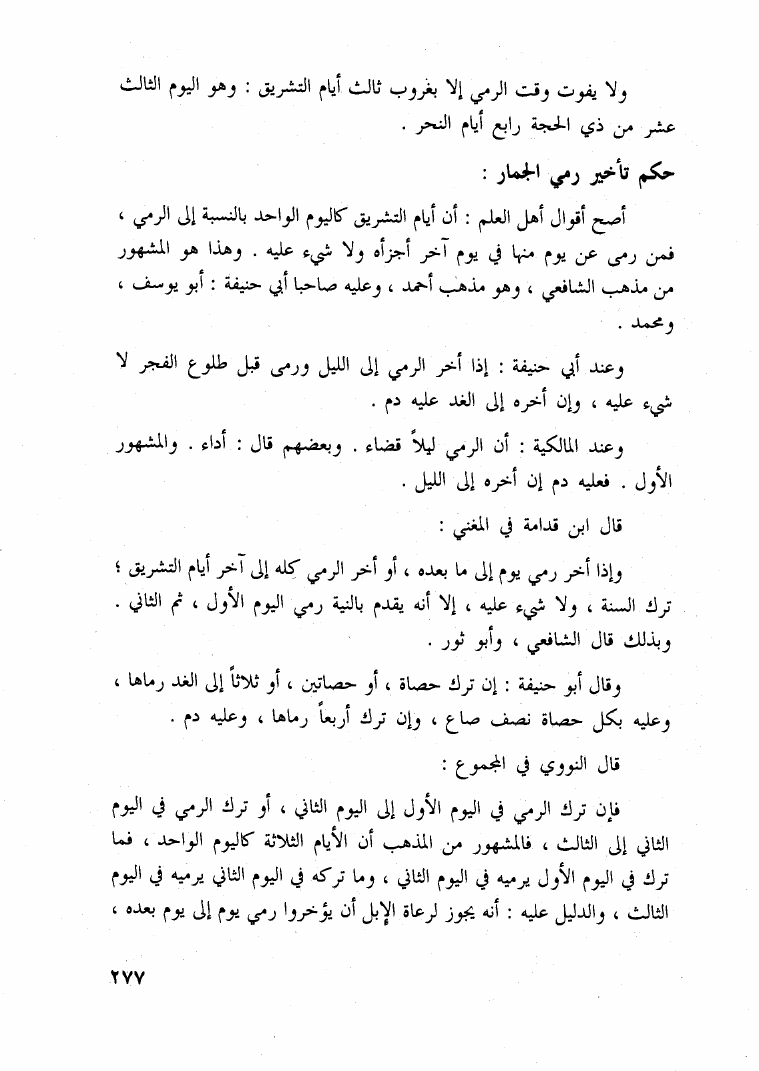 ولا يفوت وقت الرمي إلا بغروب ثالث أيام التشريق : وهو اليوم الثالث
عشر من ذي الحجة رابع أيام النحر .
حكم تأخير رمي الجمار :
أصح أقوال أهل العلم : أن أيام التشريق كاليوم الواحد بالنسبة إلى الرمي ،
فمن رمى عن يوم منها في يوم آخر أجزأه ولا شيء عليه . وهذا هو المشهور
من مذهب الشافعي ، وهو مذهب أحمد ، وعليه صاحبا أبي حنيفة : أبو يوسف ،
ومحمد .
وعند أبي حنيفة : إذا أخر الرمي إلى الليل ورمى قبل طلوع الفجر لا
شيء عليه ، وإن أخره إلى الغد عليه دم .
وعند المالكية : أن الرمي ليلاً قضاء . وبعضهم قال : أداء . والمشهور
الأول . فعليه دم إن أخره إلى الليل .
قال ابن قدامة في المغني :
وإذا أخر رمي يوم إلى ما بعده ، أو أخر الرمي كله إلى آخر أيام التشريق ؛
ترك السنة ، ولا شيء عليه ، إلا أنه يقدم بالنية رمي اليوم الأول ، ثم الثاني .
وبذلك قال الشافعي ، وأبو ثور .
وقال أبو حنيفة : إن ترك حصاة ، أو حصاتين ، أو ثلاثاً إلى الغد رماها ،
وعليه بكل حصاة نصف صاع ، وإن ترك أربعاً رماها ، وعليه دم .
قال النووي في المجموع :
فإن ترك الرمي في اليوم الأول إلى اليوم الثاني ، أو ترك الرمي في اليوم
الثاني إلى الثالث ، فالمشهور من المذهب أن الأيام الثلاثة كاليوم الواحد ، فما
ترك في اليوم الأول يرميه في اليوم الثاني ، وما تركه في اليوم الثاني يرميه في اليوم
الثالث ، والدليل عليه : أنه يجوز لرعاة الإبل أن يؤخروا رمي يوم إلى يوم بعده ،
٢٧٧